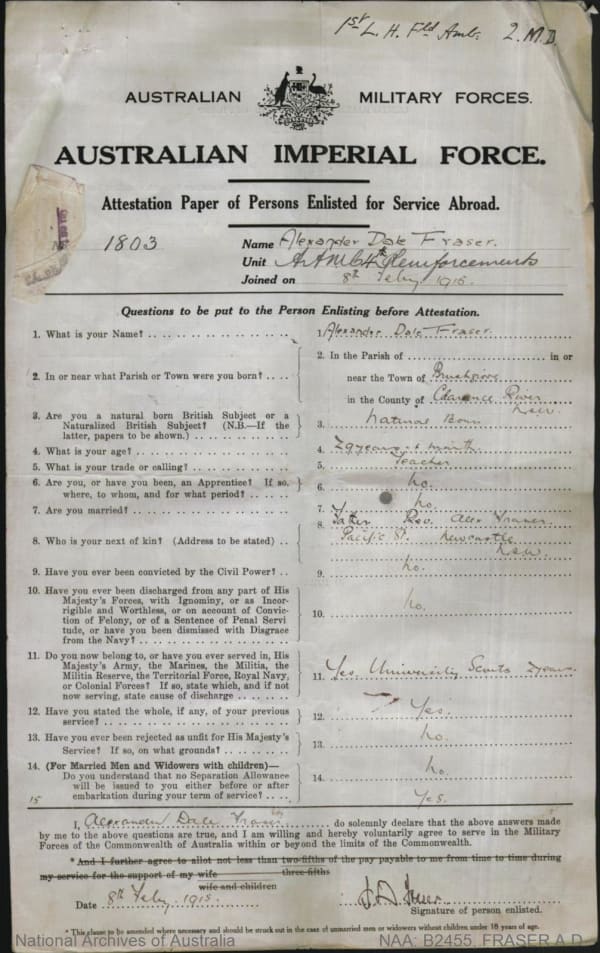 1st L. H. Fld Amb. 2. M.D.
AUSTRALIAN MILITARY FORCES.
AUSTRALIAN IMPERIAL FORCE.
Attestation Paper of Persons Enlisted for Service Abroad.
No. 1803 Name Alexander Dale Fraser.
Unit A.A.M.C. 4th Reinforcements
Joined on 8th Feby 1915.
Questions to be put to the Person Enlisting before Attestation.
1. What is your Name? 1. Alexander Dale Fraser.
2. In or near what Parish or Town were you born? 2. In the Parish of in or
near the Town of Brushgrove
in the County of Clarence River
NSW
3. Are you a natural born British Subject or a
Naturalized British Subject? (N.B.—If the
latter, papers to be shown.) 3. Natural Born
4. What is your age? 4. 29 years month
5. What is your trade or calling? 5. Teacher
6. Are you, or have you been, an Apprentice? If so,
where, to whom, and for what period? 6. No.
7. Are you married? 7. No.
8. Who is your next of kin? (Address to be stated) 8. Father Rev. Alex Fraser.
Pacific St. Newcastle
NSW.
9. Have you ever been convicted by the Civil Power? 9. No.
10. Have you ever been discharged from any part of His
Majesty's Forces, with Ignominy, or as Incor-
rigible and Worthless, or on account of Convic-
tion of Felony, or of a Sentence of Penal Servi
tude, or have you been dismissed with Disgrace
from the Navy? 10. No.
11. Do you now belong to, or have you ever served in, His
Majesty's Army, the Marines, the Militia, the
Militia Reserve, the Territorial Force, Royal Navy,
or Colonial Forces? If so, state which, and if not
now serving, state cause of discharge 11. Yes. University Scouts years
12. Have you stated the whole, if any, of your previous
service? 12. Yes.
13. Have you ever been rejected as unfit for His Majesty's
Service? If so, on what grounds? 13. No.
14. (For Married Men and Widowers with children)—
Do you understand that no Separation Allowance
will be issued to you either before or after
embarkation during your term of service? 14. No.
15 Yes.
I, Alexander Dale Fraser do solemnly declare that the above answers made
by me to the above questions are true, and I am willing and hereby voluntarily agree to serve in the Military
Forces of the Commonwealth of Australia within or beyond the limits of the Commonwealth.
* And I further agree to allot not less than two-fifths of the pay payable to me from time to time during
three-fifths
my service for the support of my wife
wife and children
Date 8th Feby. 1915.
Signature of person enlisted.
* This clause to be amended where necessary and should be struck out in the case of unmarried men or widowers without children under 18 years of age.
National Archives of Australia NAA: B2455, FRASER A D